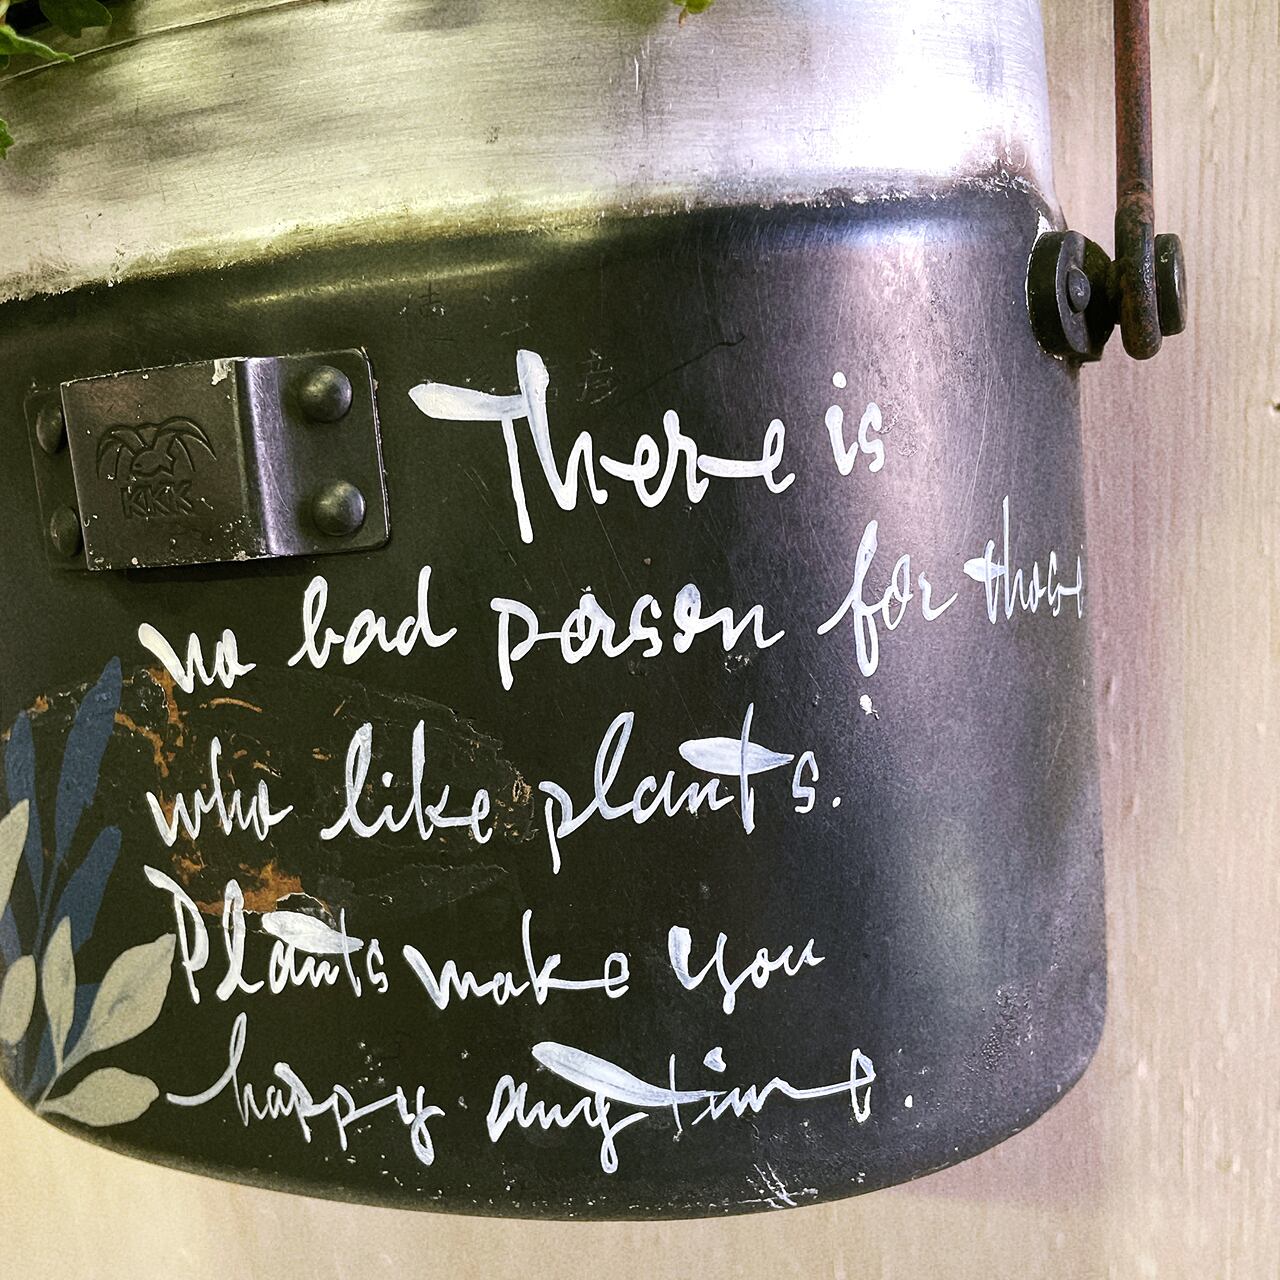 KKK
There is
no bad person for those
who like plants.
Plants make you
happy anytime.